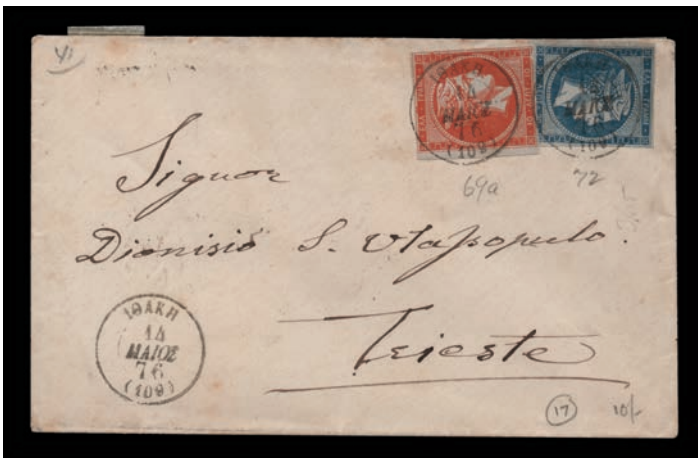 ΙΘΑΚΗ
14
ΜΑΙΟΣ
76
(109)
ΙΘΑΚΗ
14
ΜΑΙΟΣ
76
(109)
69a
72
Signor
Dionisio S. Vlassopulo.
Trieste
ΙΘΑΚΗ
14
ΜΑΙΟΣ
76
(109)
17
10/-